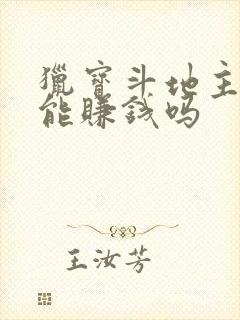 獵寶斗地主
能賺錢吗
王汝芳